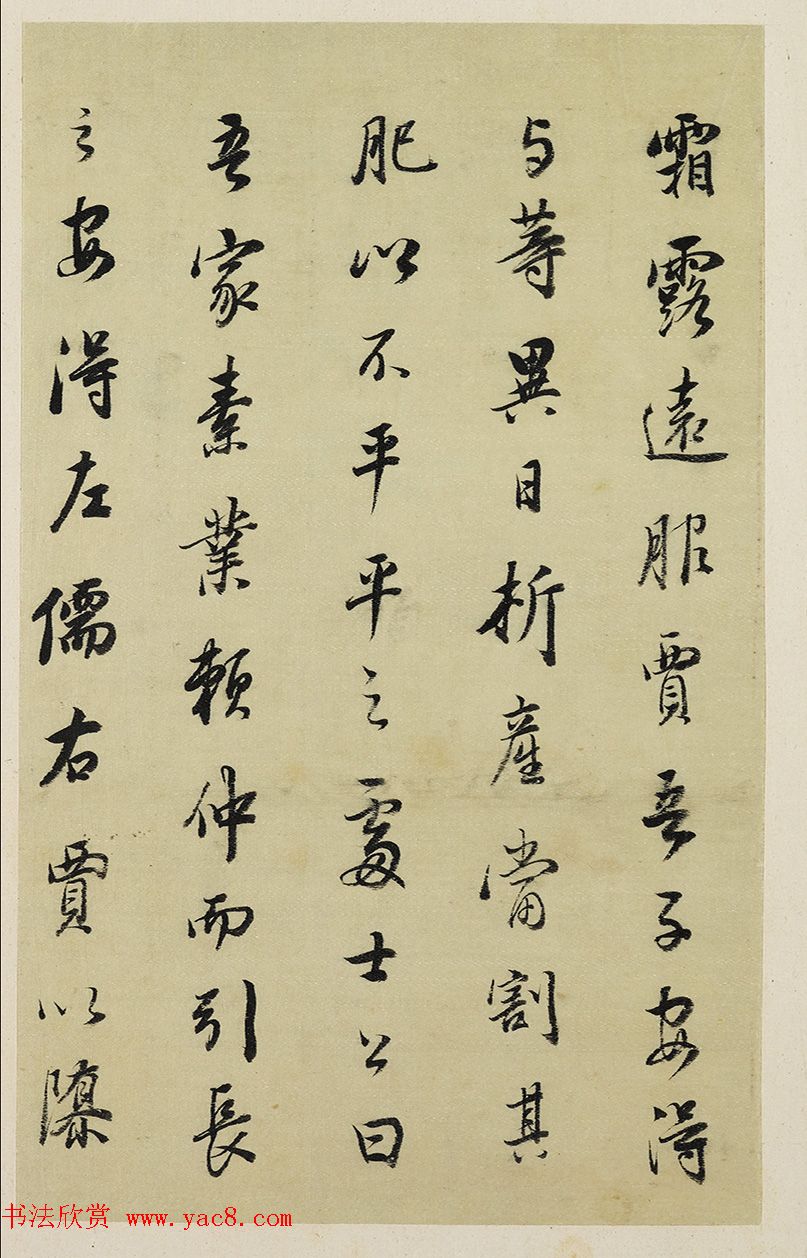 霜露遠服賈吾子安得
与等異日析產當割其
肥以不平平之處士公曰
吾家素業賴仲而引長
之安得左儒右賈以隳
书法欣赏 www.yac8.com